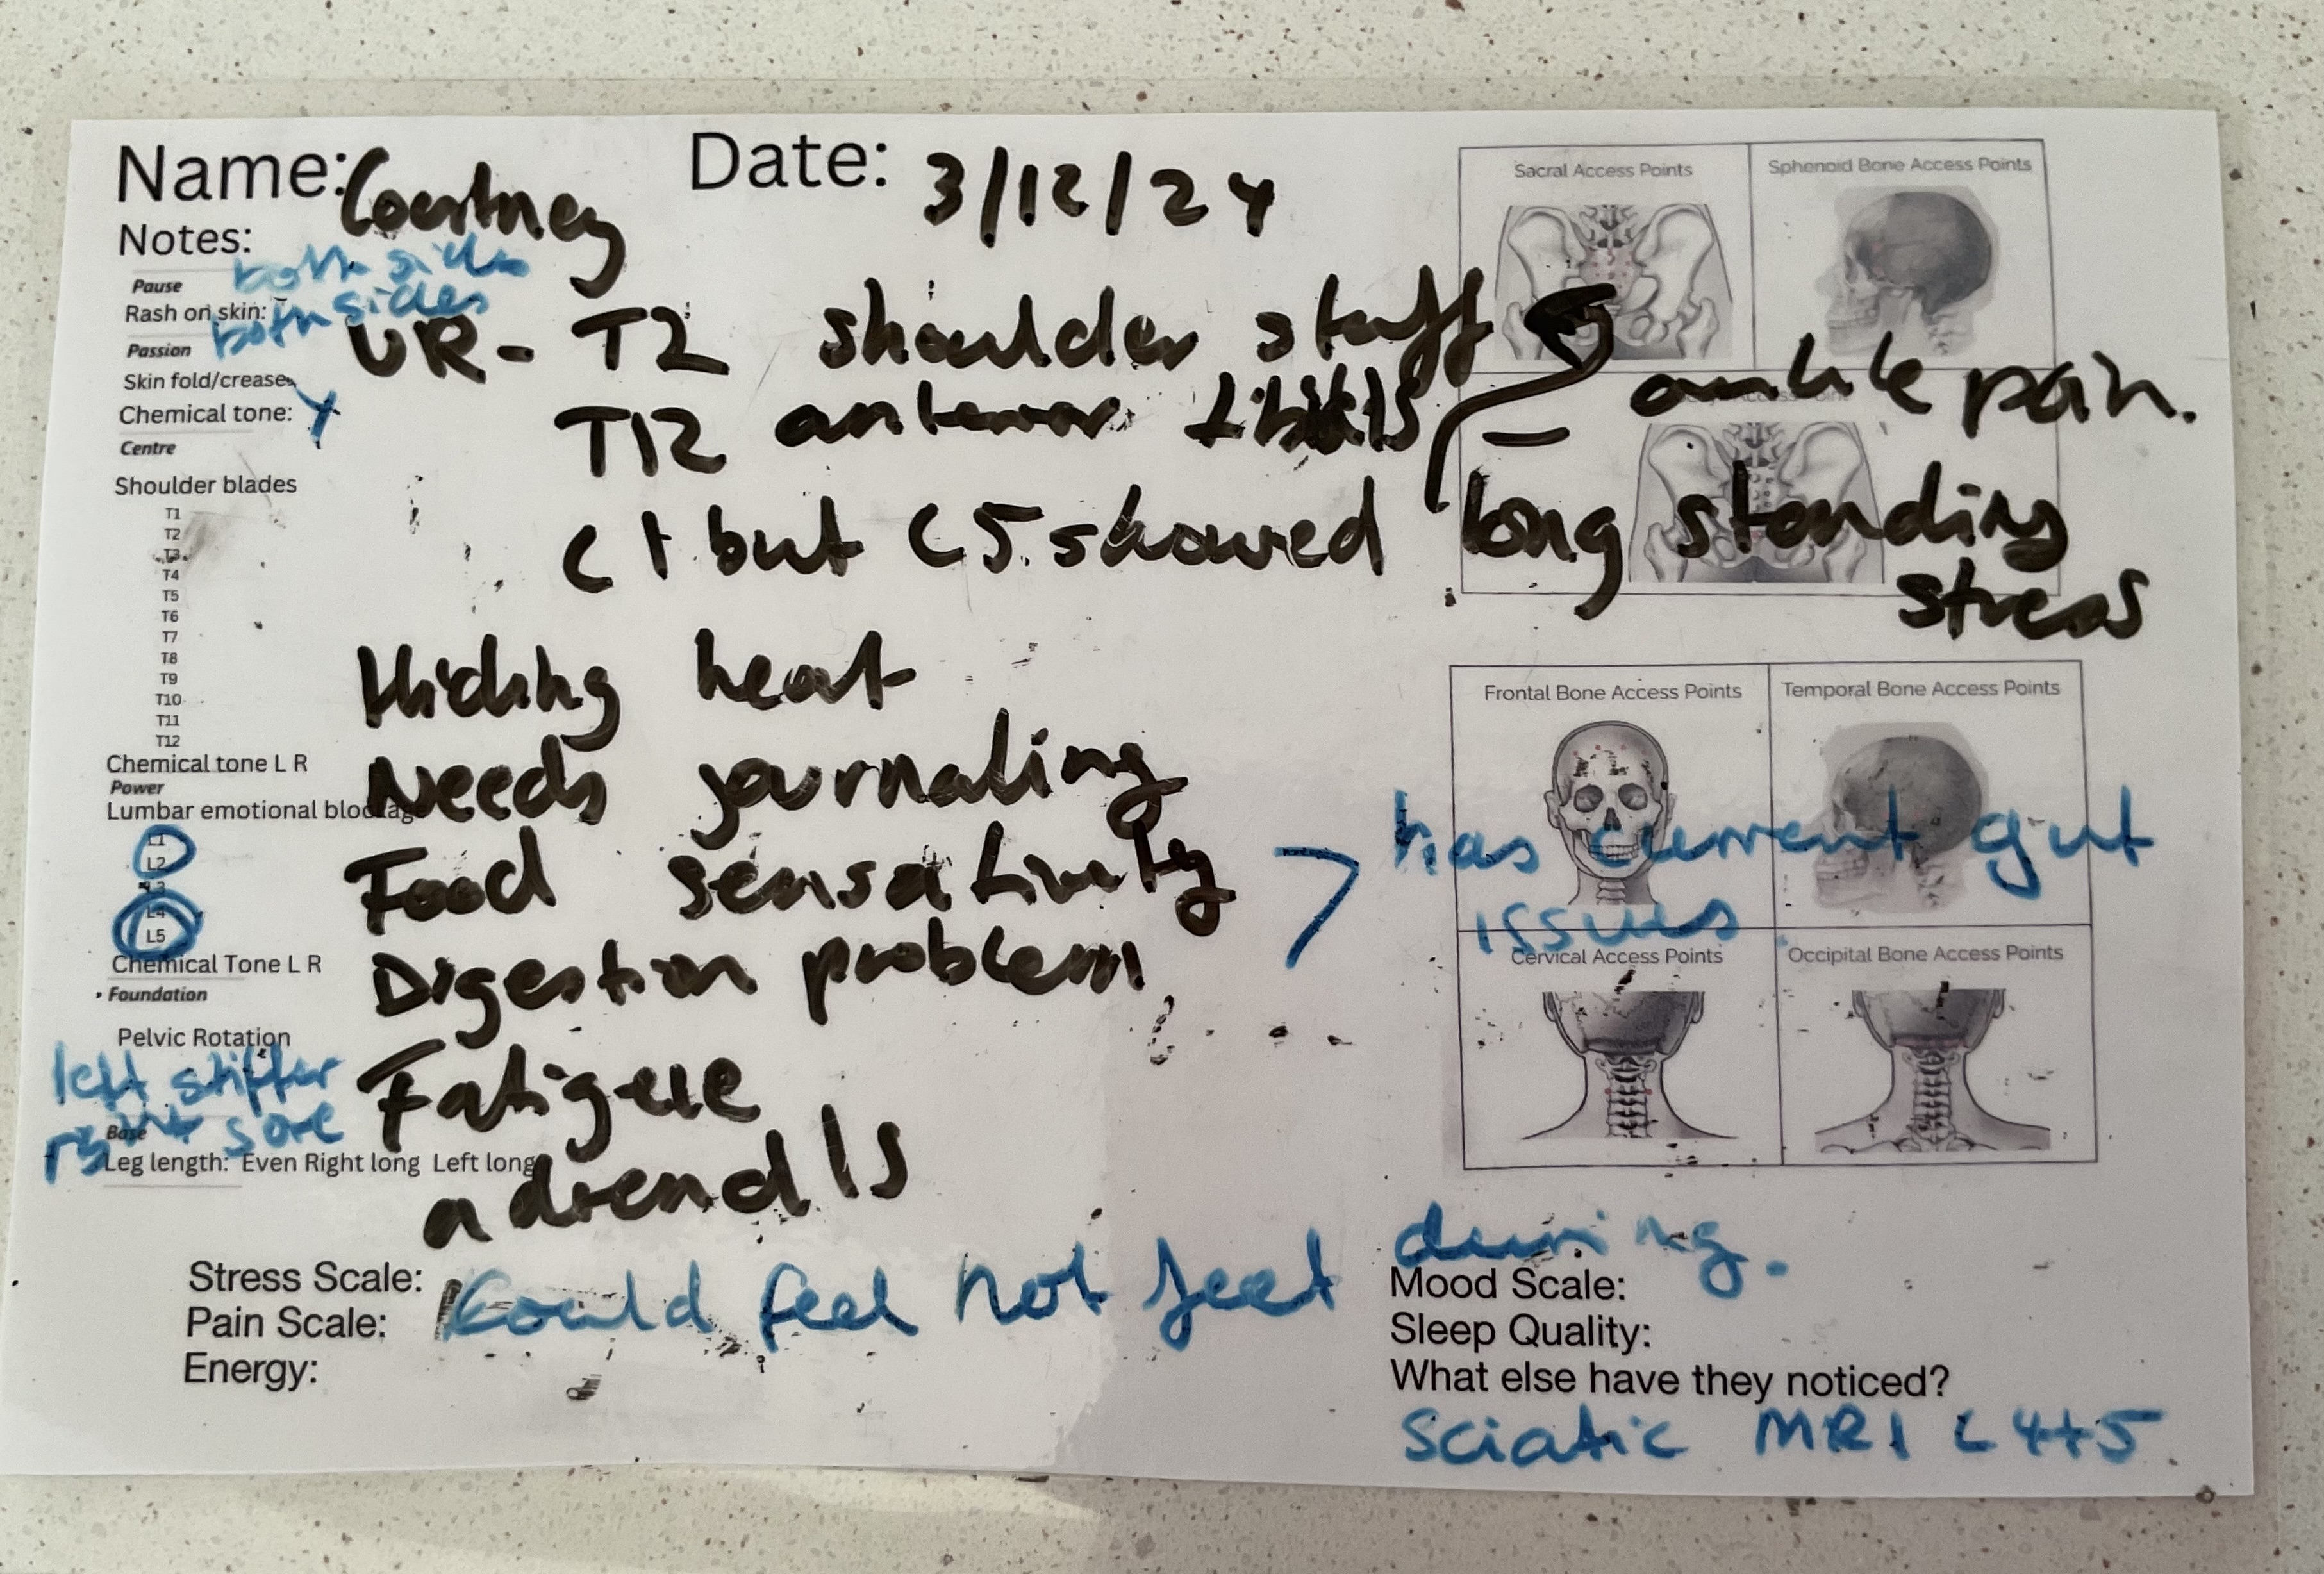 Name: Courtney
Date: 3/12/24
Notes:
both sides
Pause
Rash on skin: both sides
Passion
UR - T2 shoulder stuff
Skin fold/crease
Chemical tone: Y
T12 anterior tibialis - ankle pain.
Centre
C1 but C5 showed long standing stress
Shoulder blades
T1
T2
T3
T4
T5
T6
T7
T8
T9
T10
T11
T12
Hiding heat
Chemical tone L R
Power
Needs journaling
Lumbar emotional blockage
L1
L2
L3
L4
L5
Food sensativity > has current gut issues
Chemical Tone L R
Digestion problem
Foundation
Pelvic Rotation
left stiffer
right sore
Fatigue
Base
Leg length: Even Right long Left long
adrenals
Sacral Access Points
Sphenoid Bone Access Points
Frontal Bone Access Points
Temporal Bone Access Points
Cervical Access Points
Occipital Bone Access Points
Stress Scale:
Pain Scale:
Energy:
Could feel hot feet during.
Mood Scale:
Sleep Quality:
What else have they noticed?
Sciatic MRI L4+5